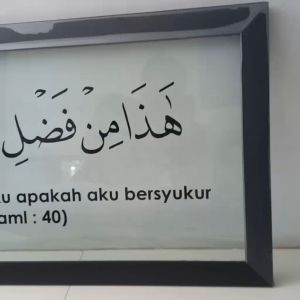 هَٰذَا مِنْ فَضْلِ
apakah aku bersyukur
: 40)